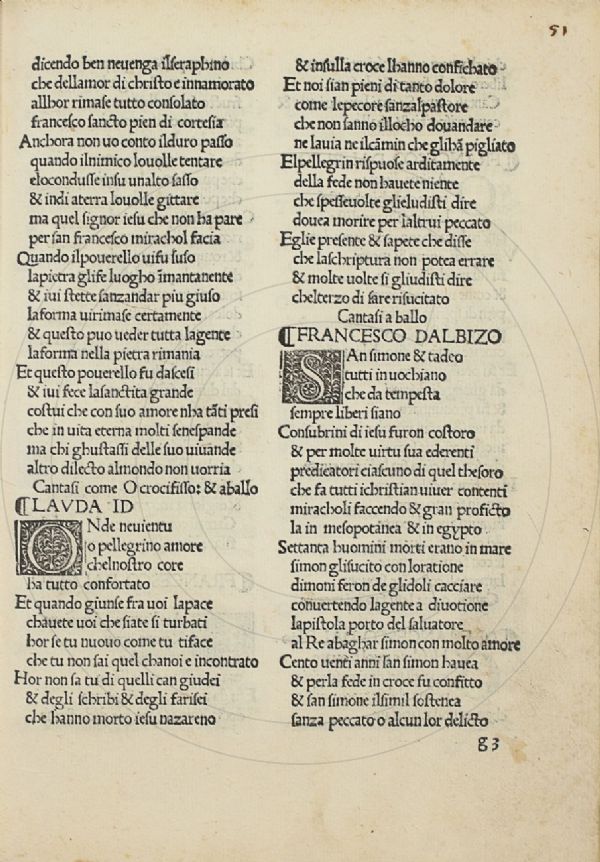 51
dicendo ben neuenga ilseraphino
che dellamor di christo e innamorato
allhor rimase tutto consolato
francesco sancto pien di cortesia
Anchora non uo conto ilduro passo
quando ilnimico louolle tentare
elocondusse insu unalto sasso
& indi aterra louolle gittare
ma quel signor iesu che non ha pare
per san francesco mirachol facia
Quando ilpouerello uifu suso
lapietra glife luogho ĩmantanente
& iui stette sanzandar piu giuso
laforma uirimase certamente
& questo puo ueder tutta lagente
laforma nella pietra rimania
Et questo pouerello fu dascesi
& iui fece lasanctita grande
costui che con suo amore nha tãti presi
che in uita eterna molti senespande
ma chi ghustassi delle suo uiuande
altro dilecto almondo non uorria
Cantasi come O crocifisso: & aballo
¶LAVDA ID
ONde neuientu
o pellegrino amore
chelnostro core
ha tutto confortato
Et quando giunse fra uoi lapace
chauete uoi che siate si turbati
hor se tu nuouo come tu tiface
che tu non sai quel chanoi e incontrato
Hor non sa tu di quelli can giudei
& degli schribi & degli farisei
che hanno morto iesu nazareno
& insulla croce lhanno confichato
Et noi sian pieni di tanto dolore
come lepecore sanzalpastore
che non sanno illocho douandare
ne lauia ne ilcãmin che glihã pigliato
Elpellegrin rispuose arditamente
della fede non hauete niente
che spesseuolte glieludisti dire
douea morire per laltrui peccato
Eglie presente & sapete che disse
che laschriptura non potea errare
& molte uolte si gliudisti dire
chelterzo di fare risucitato
Cantasi a ballo
¶FRANCESCO DALBIZO
SAn simone & tadeo
tutti in uochiano
che da tempesta
sempre liberi siano
Consubrini di iesu furon costoro
& per molte uirtu sua ederenti
predicatori ciascuno di quel thesoro
che fa tutti ichristian uiuer contenti
miracholi faccendo & gran proficto
la in mesopotanea & in egypto
Settanta huomini morti erano in mare
simon glisucito con loratione
dimoni feron de glidoli cacciare
conuertendo lagente a diuotione
lapistola porto del saluatore
al Re abaghar simon con molto amore
Cento uenti anni san simon hauea
& perla fede in croce fu confitto
& san simone ilsimil sostenea
sanza peccato o alcun lor delicto
g3